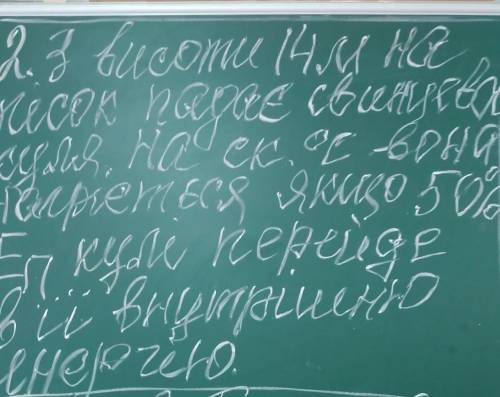 2. З висоти 14 м на
пісок падає свинцева
куля. На ск. °C вона
нагріється якщо 50%
Eп кулі перейде
в її внутрішню
енергію.